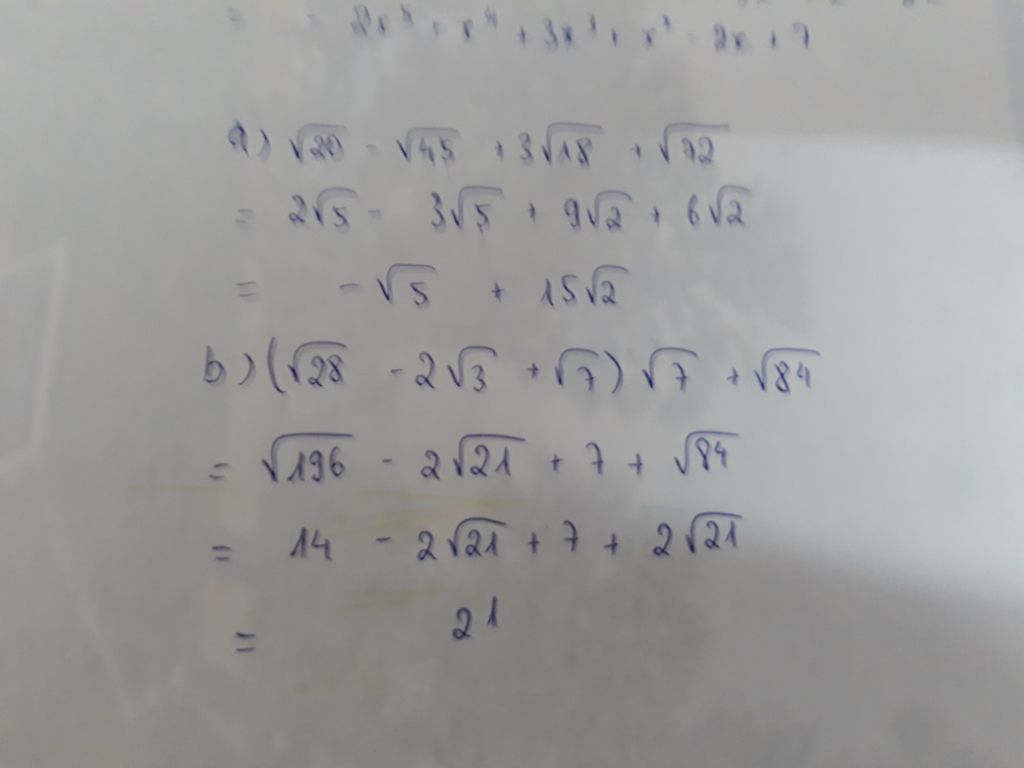 = = 2x⁵ + x⁴ + 3x³ + x² - 2x + 7
a) √20 - √45 + 3√18 + √72
= 2√5 - 3√5 + 9√2 + 6√2
= -√5 + 15√2
b) (√28 - 2√3 + √7) √7 + √84
= √196 - 2√21 + 7 + √84
= 14 - 2√21 + 7 + 2√21
= 21